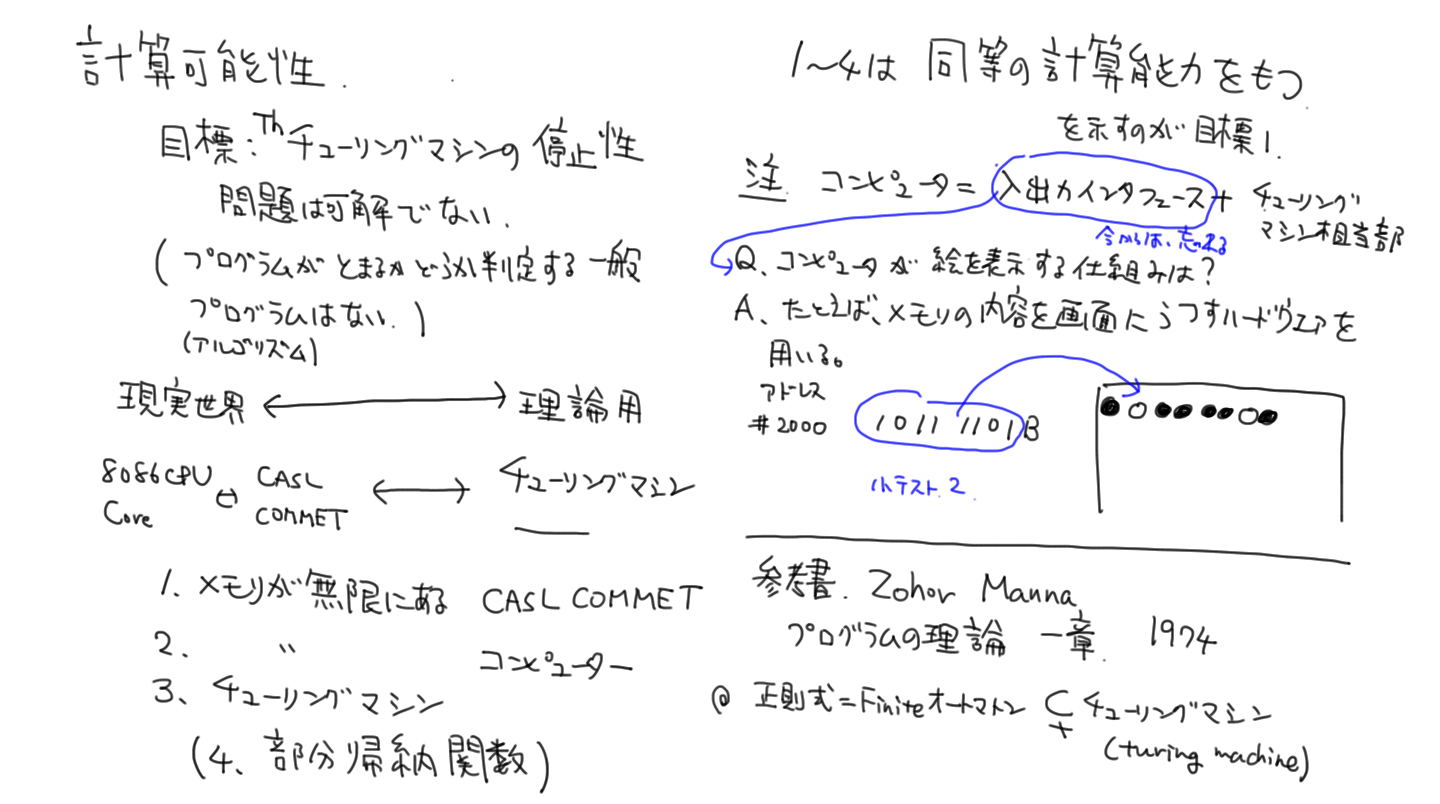 計算可能性.
目標:Th チューリングマシンの停止性
問題は可解でない.
(プログラムがとまるかどうか判定する一般
プログラムはない.)
(アルゴリズム)
現実世界 ⟷ 理論用
8086CPU Core ⇔ CASL COMMET ⟷ チューリングマシン
1. メモリが無限にある CASL COMMET
2. 〃 コンピューター
3. チューリングマシン
(4、部分帰納関数)
1~4は 同等の計算能力をもつ
を示すのが目標1.
注. コンピュータ = 入出力インタフェース + チューリングマシン相当部
今からは、忘れる
Q、コンピュータが絵を表示する仕組みは?
A、たとえば、メモリの内容を画面にうつすハードウェアを
用いる。
アドレス
#2000 1011 1101B
小テスト.2.
参考書. Zohor Manna
プログラムの理論 一章. 1974
@ 正則式=Finiteオートマトン ⊊ チューリングマシン
(turing machine)